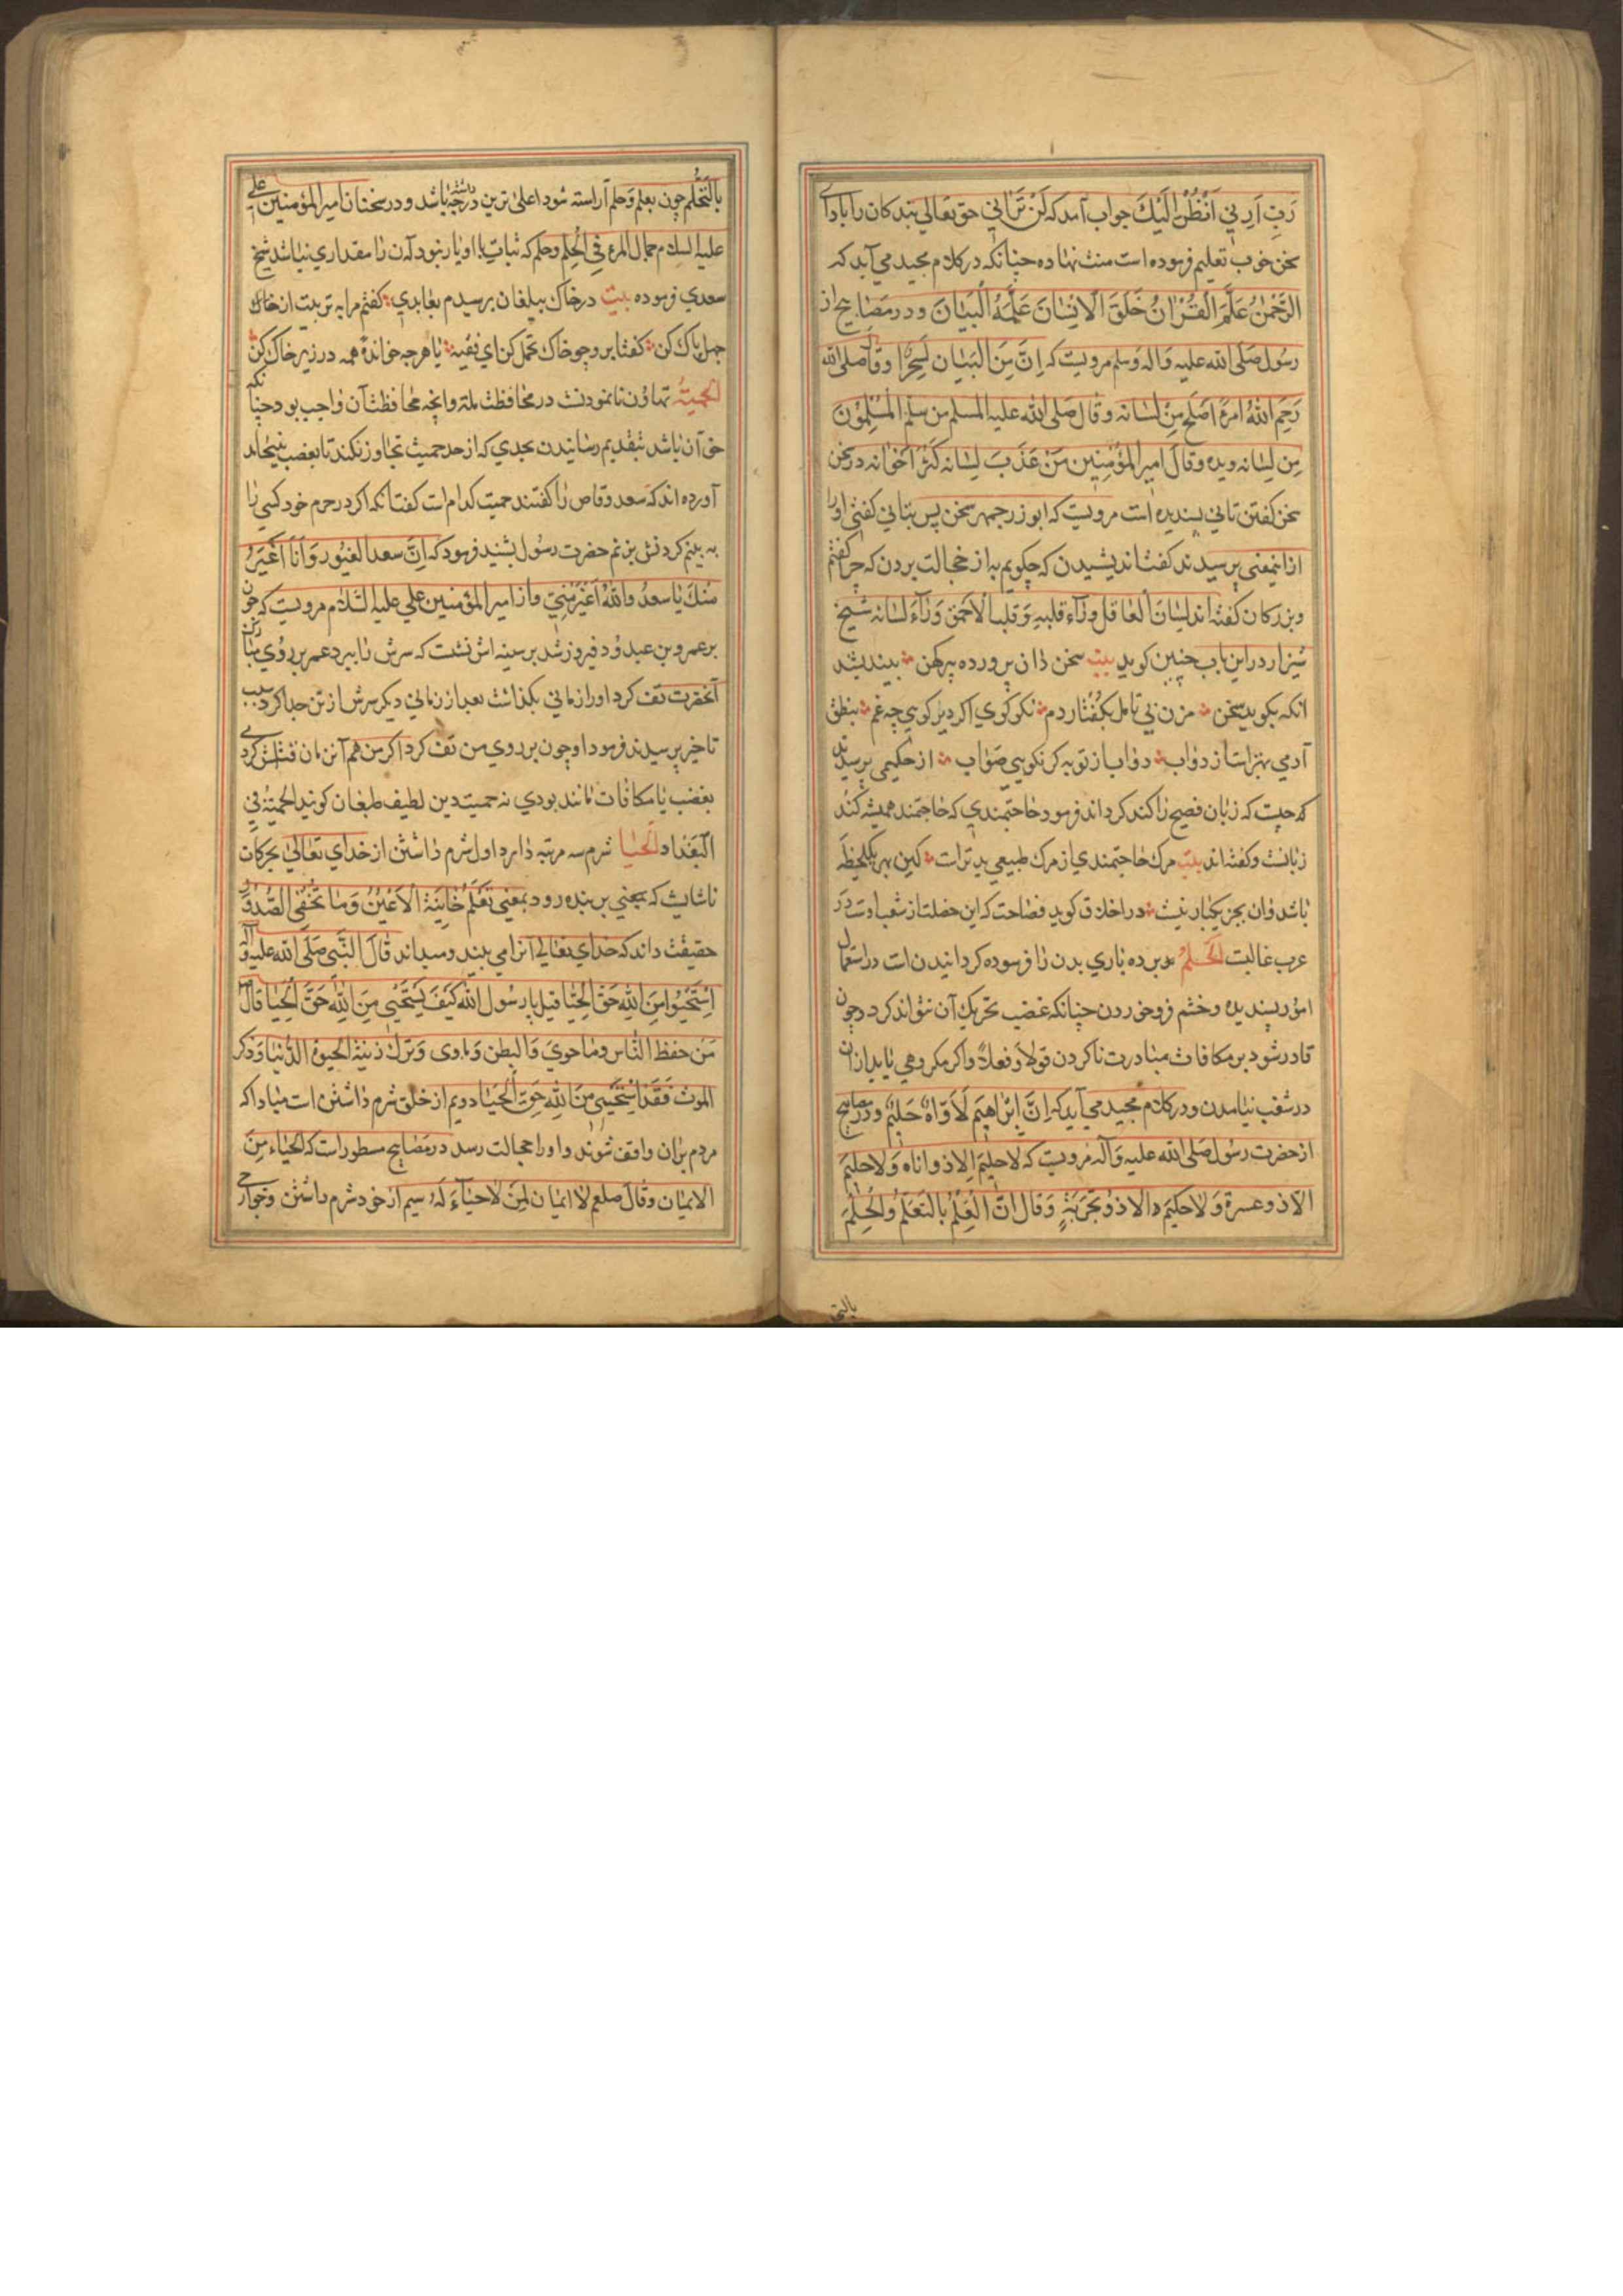 رَبِّ اَرِنِي اَنْظُرْ اِلَيْكَ جواب آمد که لَنْ تَرٰانِي حق تعالی بندکان را باداء
سخن خوب تعلیم فرموده است منت نهاده چنانکه در کلام مجید می آید که
الرَّحْمٰنُ عَلَّمَ الْقُرْاٰنَ خَلَقَ الْاِنْسٰانَ عَلَّمَهُ الْبَيٰانَ ودر مصٰابیح از
رسول صلی الله علیه واله وسلم مرویست که اِنَّ مِنَ الْبَيٰانِ لَسِحْرًا وقال صلی الله
رَحِمَ اللهُ امرءً اَصْلَحَ مِنْ لِسٰانه وقال صلی الله علیه المسلم من سلم المسلمون
مِن لِسٰانه ویده وقال امیر المؤمنین مَنْ عَذُبَ لِسٰانه کَثُرَ اخوٰانه در سخن
سخن کفتن تانی پسندیده است مرویست که ابوزرجمهر سخن پس بتانی کفتی او را
از اینمعنی پرسیدند کفت اندیشیدن که چکویم به از خجالت بردن که چرا کفتم
وبزرکان کفته اند لسٰان العٰاقل ورٰاء قلبه وقلب الاحمق ورٰاء لسٰانه شیخ
شیراز در این باب چنین کوید بیت سخن دان پرورده پیر کهن بیندیشد
انکه بکوید سخن مزن بی تامل بکفتار دم نکو کوی اکر دیر کویی چه غم بنطق
آدمی بهتر است از دواب دواب از تو به کر نکویی صواب از حکیمی پرسیدند
که چیست که زبان فصیح را کند کرداند فرمود حاجتمندی که حاجتمند همیشه کند
زبانست وکفته اند بیت مرک حاجتمندی از مرک طبیعی بدتر است کین بهر یکلحظه
باشد وان بجز یکبار نیست در اخلاق کوید فصاحت که این خصلت از شعب اوست در
عرب غالبست الحلم بدین ده باری بدن را فرسوده کردانیدن است در استعمال
امور پسندیده وخشم فرو خوردن چنانکه غضب تحریک آن نتواند کرد وچون
قادر شود بر مکافات مبادرت ناکردن قولا وفعلاً واکر مکروهی یابد از ان
در شغب نیامدن ودر کلام مجید می آید که اِنَّ اِبْرٰاهِيمَ لَاَوّٰاهٌ حَلِيمٌ ودر مصابیح
از حضرت رسول صلی الله علیه وآله مرویست که لا حلیم الا ذو اناه ولا حلیم
الا ذو عسرة ولا حکیم الا ذو تجربة وقال انّ العلم بالتعلّم والحلم
بالتحلم
بالتّحلّم چون بعلم وحلم آراسته شود اعلی ترین درجه داشته باشد ودر سخنان امیر المؤمنین علی
علیه السلام جمال المرء فی الحلم وحلم که ثبات با او یار نبود آن را مقداری نباشد شیخ
سعدی فرموده بیت در خاک بیلقان برسیدم بعابدی کفتم مرا به تربیت از خاک
جهل پاک کن کفتا برو چو خاک تحمل کن ای فقیه یا هر چه خوانده همه در زیر خاک کن
الحمیّة تهاون نانمودنست در محافظت ملة وانچه محافظت آن واجب بود چنانکه
حق آن باشد بتقدیم رسانیدن بحدی که از حد حمیت تجاوز نکند تا بغضب نینجامد
آورده اند که سعد وقاص را کفتند حمیت کدام است کفت انکه اکر در حرم خود کسی را
به بینم کردنش بزنم حضرت رسول بشنید فرمود که اِنَّ سعدا لغیور وَاَنَا اَغْيَرُ
مِنْكَ یا سعد والله اَغْيَرُ مِنّي واز امیر المؤمنین علی علیه السلام مرویست که چون
بر عمرو بن عبدود فیروز شد بر سینه اش نشست که سرش را ببرد عمر بر روی مبارک
آنحضرت تف کرد او را زمانی بکذاشت بعد از زمانی دیکر سرش از تن جدا کرد سبب
تاخیر پرسیدند فرمود او چون بر روی من تف کرد اکر من هم آنزمان قتلش کردمی
بغضب یا مکافات مانند بودی نه حمیت دین لطیف طبعان کویند الحمیة فی
البغداد الحیٰا شرم سه مرتبه دارد اول شرم داشتن از خدای تعالی بحرکات
ناشایست که بجنبی بر بنده رود بمعنی تَعْلَمُ خٰائِنَةَ الْاَعْيُنِ وَمٰا تُخْفِي الصُّدُورُ
حقیقت داند که خدای تعالی انرا می بیند ومیداند قال النّبی صلی الله علیه وآله
اِسْتَحْيُوا مِنَ اللهِ حَقَّ الحیٰا قیل یا رسول الله کیف یستحیی مِنَ اللهِ حَقَّ الحیٰا قال
مَن حفظ الرّاس وما حوی والبطن وماوی وترک زینة الحیوة الدُّنیا وذکر
الموت فَقَد استحیی مِن اللهِ حقَّ الحیٰا دویم از خلق شرم داشتن است مبادا که
مردم بران واقف شوند واو را خجالت رسد در مصابیح مسطور است که الحیٰاء مِنَ
الایمٰان وقال صلعم لا ایمٰان لِمن لا حیٰاءَ لَهُ سیم از خود شرم داشتن وخواری